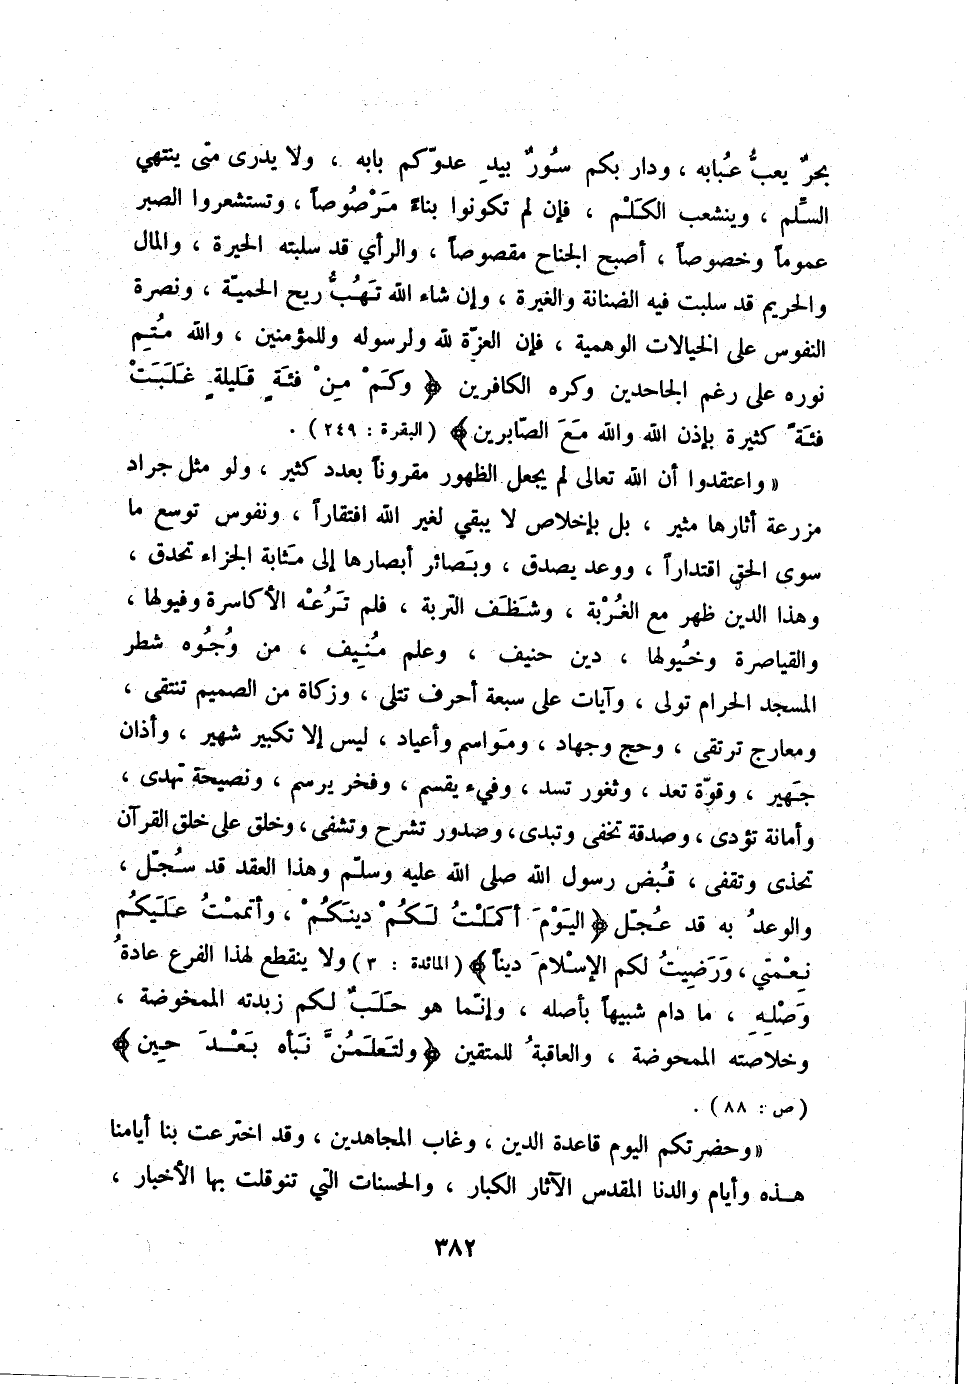 بحرٌ يعبُّ عُبابه ، ودار بكم سُورٌ بيدِ عدوّكم بابه ، ولا يدرى متى ينتهي
السَّلم ، وينشعب الكَلْم ، فإن لم تكونوا بناءً مَرْصُوصاً ، وتستشعروا الصبر
عموماً وخصوصاً ، أصبح الجناح مقصوصاً ، والرأي قد سلبته الحيرة ، والمال
والحريم قد سلبت فيه الضنانة والغيرة ، وإن شاء الله تَهُبُّ ريح الحميّة ، ونصرة
النفوس على الخيالات الوهمية ، فإن العزّة لله ولرسوله وللمؤمنين ، والله مُتِم
نوره على رغم الجاحدين وكره الكافرين ﴿ وكَمْ مِنْ فئَةٍ قَليلةٍ غَلَبَتْ
فئَةً كثيرة بإذن الله والله مَعَ الصّابرين ﴾ ( البقرة : ٢٤٩ ) .
« واعتقدوا أن الله تعالى لم يجعل الظهور مقروناً بعدد كثير ، ولو مثل جراد
مزرعة أثارها مثير ، بل بإخلاص لا يبقي لغير الله افتقاراً ، ونفوس توسع ما
سوى الحق اقتداراً ، ووعد يصدق ، وبَصائر أبصارها إلى مَثابة الجزاء تحدق ،
وهذا الدين ظهر مع الغُرْبة ، وشَظَف التربة ، فلم تَرُعْه الأكاسرة وفيولها ،
والقياصرة وخُيولها ، دين حنيف ، وعلم مُنيف ، من وُجُوه شطر
المسجد الحرام تولى ، وآيات على سبعة أحرف تتلى ، وزكاة من الصميم تنتقى ،
ومعارج ترتقى ، وحج وجهاد ، ومَواسم وأعياد ، ليس إلا تكبير شهير ، وأذان
جَهير ، وقوّة تعد ، وثغور تسد ، وفيء يقسم ، وفخر يرسم ، ونصيحة تهدى ،
وأمانة تؤدى ، وصدقة تخفى وتبدى ، وصدور تشرح وتشفى ، وخلق على خلق القرآن
تحذى وتقفى ، قُبض رسول الله صلى الله عليه وسلّم وهذا العقد قد سُجّل ،
والوعدُ به قد عُجّل ﴿ اليَوْمَ أكمَلْتُ لَكُمْ دينَكُمْ ، وأتممْتُ عَلَيكُم
نِعْمَتي ، وَرَضِيتُ لكم الإسْلامَ ديناً ﴾ ( المائدة : ٣ ) ولا ينقطع لهذا الفرع عادةُ
وَصْلِهِ ، ما دام شبيهاً بأصله ، وإنّما هو حَلَبٌ لكم زبدته الممخوضة ،
وخلاصته الممحوضة ، والعاقبةُ للمتقين ﴿ ولتَعلَمُنَّ نَبأه بَعْدَ حِين ﴾
( ص : ٨٨ ) .
« وحضرتكم اليوم قاعدة الدين ، وغاب المجاهدين ، وقد اخترعت بنا أيامنا
هذه وأيام والدنا المقدس الآثار الكبار ، والحسنات التي تنوقلت بها الأخبار ،
٣٨٢